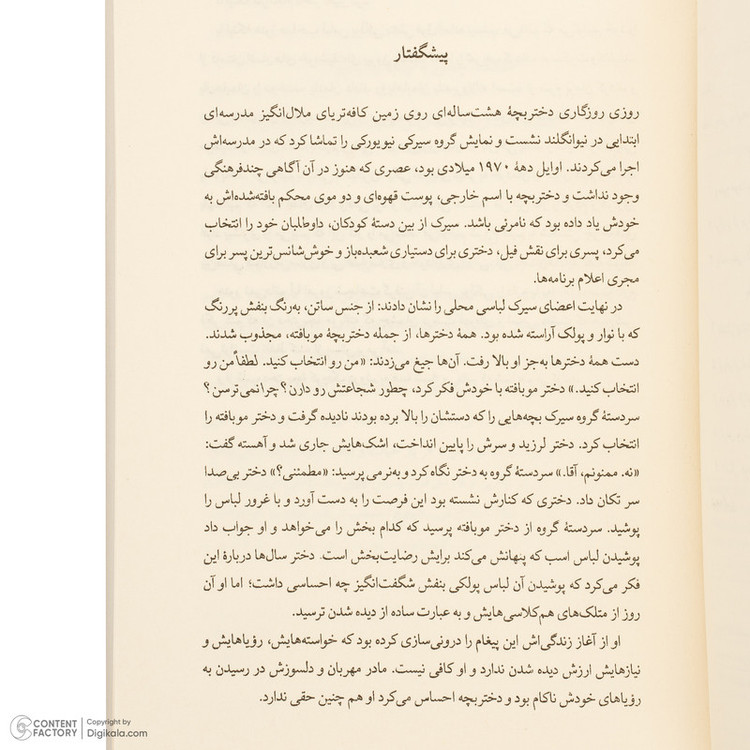 پیشگفتار
روزی روزگاری دختربچهٔ هشت‌ساله‌ای روی زمین کافه‌تریای ملال‌انگیز مدرسه‌ای
ابتدایی در نیوانگلند نشست و نمایش گروه سیرکی نیویورکی را تماشا کرد که در مدرسه‌اش
اجرا می‌کردند. اوایل دههٔ ۱۹۷۰ میلادی بود، عصری که هنوز در آن آگاهی چندفرهنگی
وجود نداشت و دختربچه با اسم خارجی، پوست قهوه‌ای و دو موی محکم بافته‌شده‌اش به
خودش یاد داده بود که نامرئی باشد. سیرک از بین دستهٔ کودکان، داوطلبان خود را انتخاب
می‌کرد، پسری برای نقش فیل، دختری برای دستیاری شعبده‌باز و خوش‌شانس‌ترین پسر برای
مجری اعلام برنامه‌ها.
در نهایت اعضای سیرک لباسی محلی را نشان دادند: از جنس ساتن، به‌رنگ بنفش پررنگ
که با نوار و پولک آراسته شده بود. همهٔ دخترها، از جمله دختربچهٔ موبافته، مجذوب شدند.
دست همهٔ دخترها به‌جز او بالا رفت. آن‌ها جیغ می‌زدند: «من رو انتخاب کنید. لطفاً من رو
انتخاب کنید.» دختر موبافته با خودش فکر کرد، چطور شجاعتش رو دارن؟ چرا نمی‌ترسن؟
سردستهٔ گروه سیرک بچه‌هایی را که دستشان را بالا برده بودند نادیده گرفت و دختر موبافته را
انتخاب کرد. دختر لرزید و سرش را پایین انداخت، اشک‌هایش جاری شد و آهسته گفت:
«نه. ممنونم، آقا.» سردستهٔ گروه به دختر نگاه کرد و به‌نرمی پرسید: «مطمئنی؟» دختر بی‌صدا
سر تکان داد. دختری که کنارش نشسته بود این فرصت را به دست آورد و با غرور لباس را
پوشید. سردستهٔ گروه از دختر موبافته پرسید که کدام بخش را می‌خواهد و او جواب داد
پوشیدن لباس اسب که پنهانش می‌کند برایش رضایت‌بخش است. دختر سال‌ها دربارهٔ این
فکر می‌کرد که پوشیدن آن لباس پولکی بنفش شگفت‌انگیز چه احساسی داشت؛ اما او آن
روز از متلک‌های هم‌کلاسی‌هایش و به عبارت ساده از دیده شدن ترسید.
او از آغاز زندگی‌اش این پیغام را درونی‌سازی کرده بود که خواسته‌هایش، رؤیاهایش و
نیازهایش ارزش دیده شدن ندارد و او کافی نیست. مادر مهربان و دلسوزش در رسیدن به
رؤیاهای خودش ناکام بود و دختربچه احساس می‌کرد او هم چنین حقی ندارد.
CONTENT FACTORY
Copyright by
Digikala.com